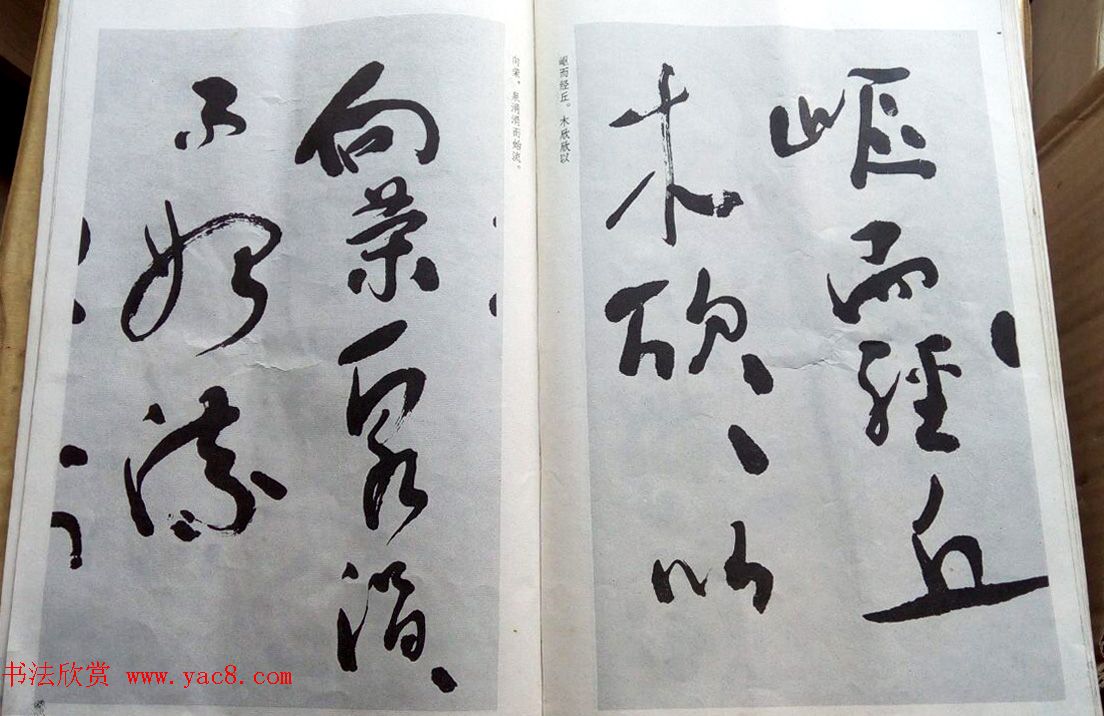 岖而经丘。木欣欣以
嶇而經丘
木欣、、以
向荣，泉涓涓而始流。
向荣泉涓、
而始流
书法欣赏 www.yac8.com